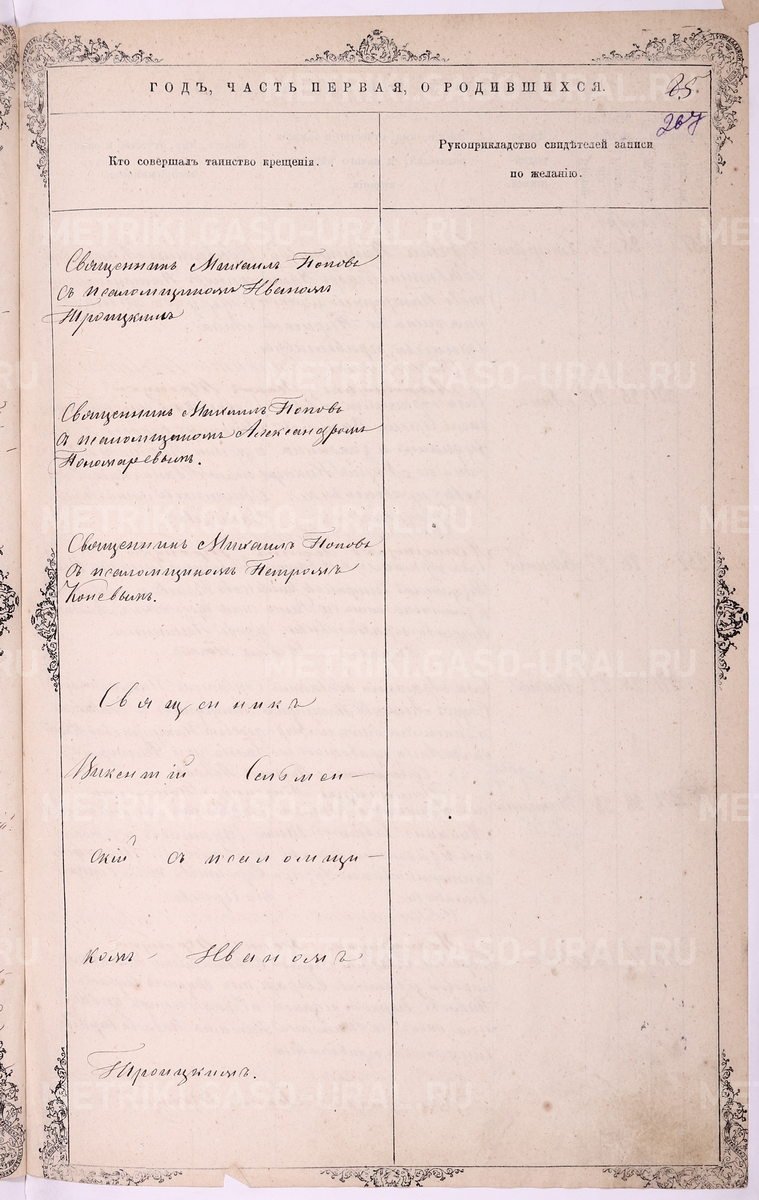 ГОДЪ, ЧАСТЬ ПЕРВАЯ, О РОДИВШИХСЯ.
25.
267
Кто совершалъ таинство крещенія.
Рукоприкладство свидѣтелей записи
по желанію.
Священникъ Михаилъ Поповъ
съ псаломщикомъ Иваномъ
Троицкимъ
Священникъ Михаилъ Поповъ
съ псаломщикомъ Александромъ
Пономаревымъ.
Священникъ Михаилъ Поповъ
съ псаломщикомъ Петромъ
Коневымъ.
Священникъ
Викентій Сельмен-
скій съ псаломщи-
комъ Иваномъ
Троицкимъ.
METRIKI.GASO-URAL.RU